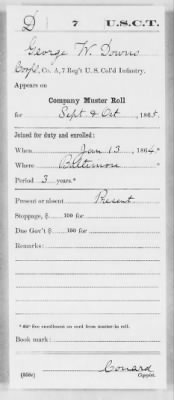 D 7 U.S.C.T.
George W. Downs
Corpl, Co. A, 7 Reg't U. S. Col'd Infantry.
Appears on
Company Muster Roll
for Sept & Oct, 1865.
Joined for duty and enrolled:
When Jan 13, 1864.*
Where Baltimore
Period 3 years.*
Present or absent Present
Stoppage, $ 100 for
Due Gov't $ 100 for
Remarks:
* See enrollment on card from muster-in roll.
Book mark:
(358c) Conard
Copyist.